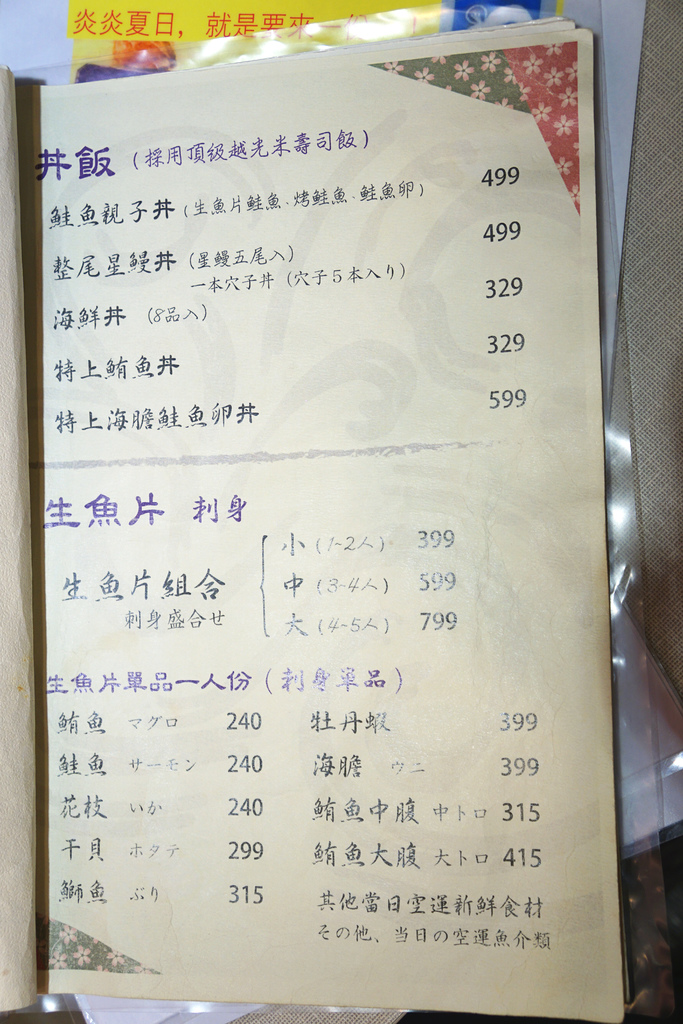 炎炎夏日，就是要來一份
丼飯（採用頂級越光米壽司飯）
鮭魚親子丼（生魚片鮭魚、烤鮭魚、鮭魚卵） 499
整尾星鰻丼（星鰻五尾入） 499
一本穴子丼（穴子5本入り）
海鮮丼（8品入） 329
特上鮪魚丼 329
特上海膽鮭魚卵丼 599
生魚片 刺身
生魚片組合
刺身盛合せ
小（1~2人） 399
中（3~4人） 599
大（4~5人） 799
生魚片單品一人份（刺身單品）
鮪魚 マグロ 240
鮭魚 サーモン 240
花枝 いか 240
干貝 ホタテ 299
鰤魚 ぶり 315
牡丹蝦 399
海膽 ウニ 399
鮪魚中腹 中トロ 315
鮪魚大腹 大トロ 415
其他當日空運新鮮食材
その他、当日の空運魚介類